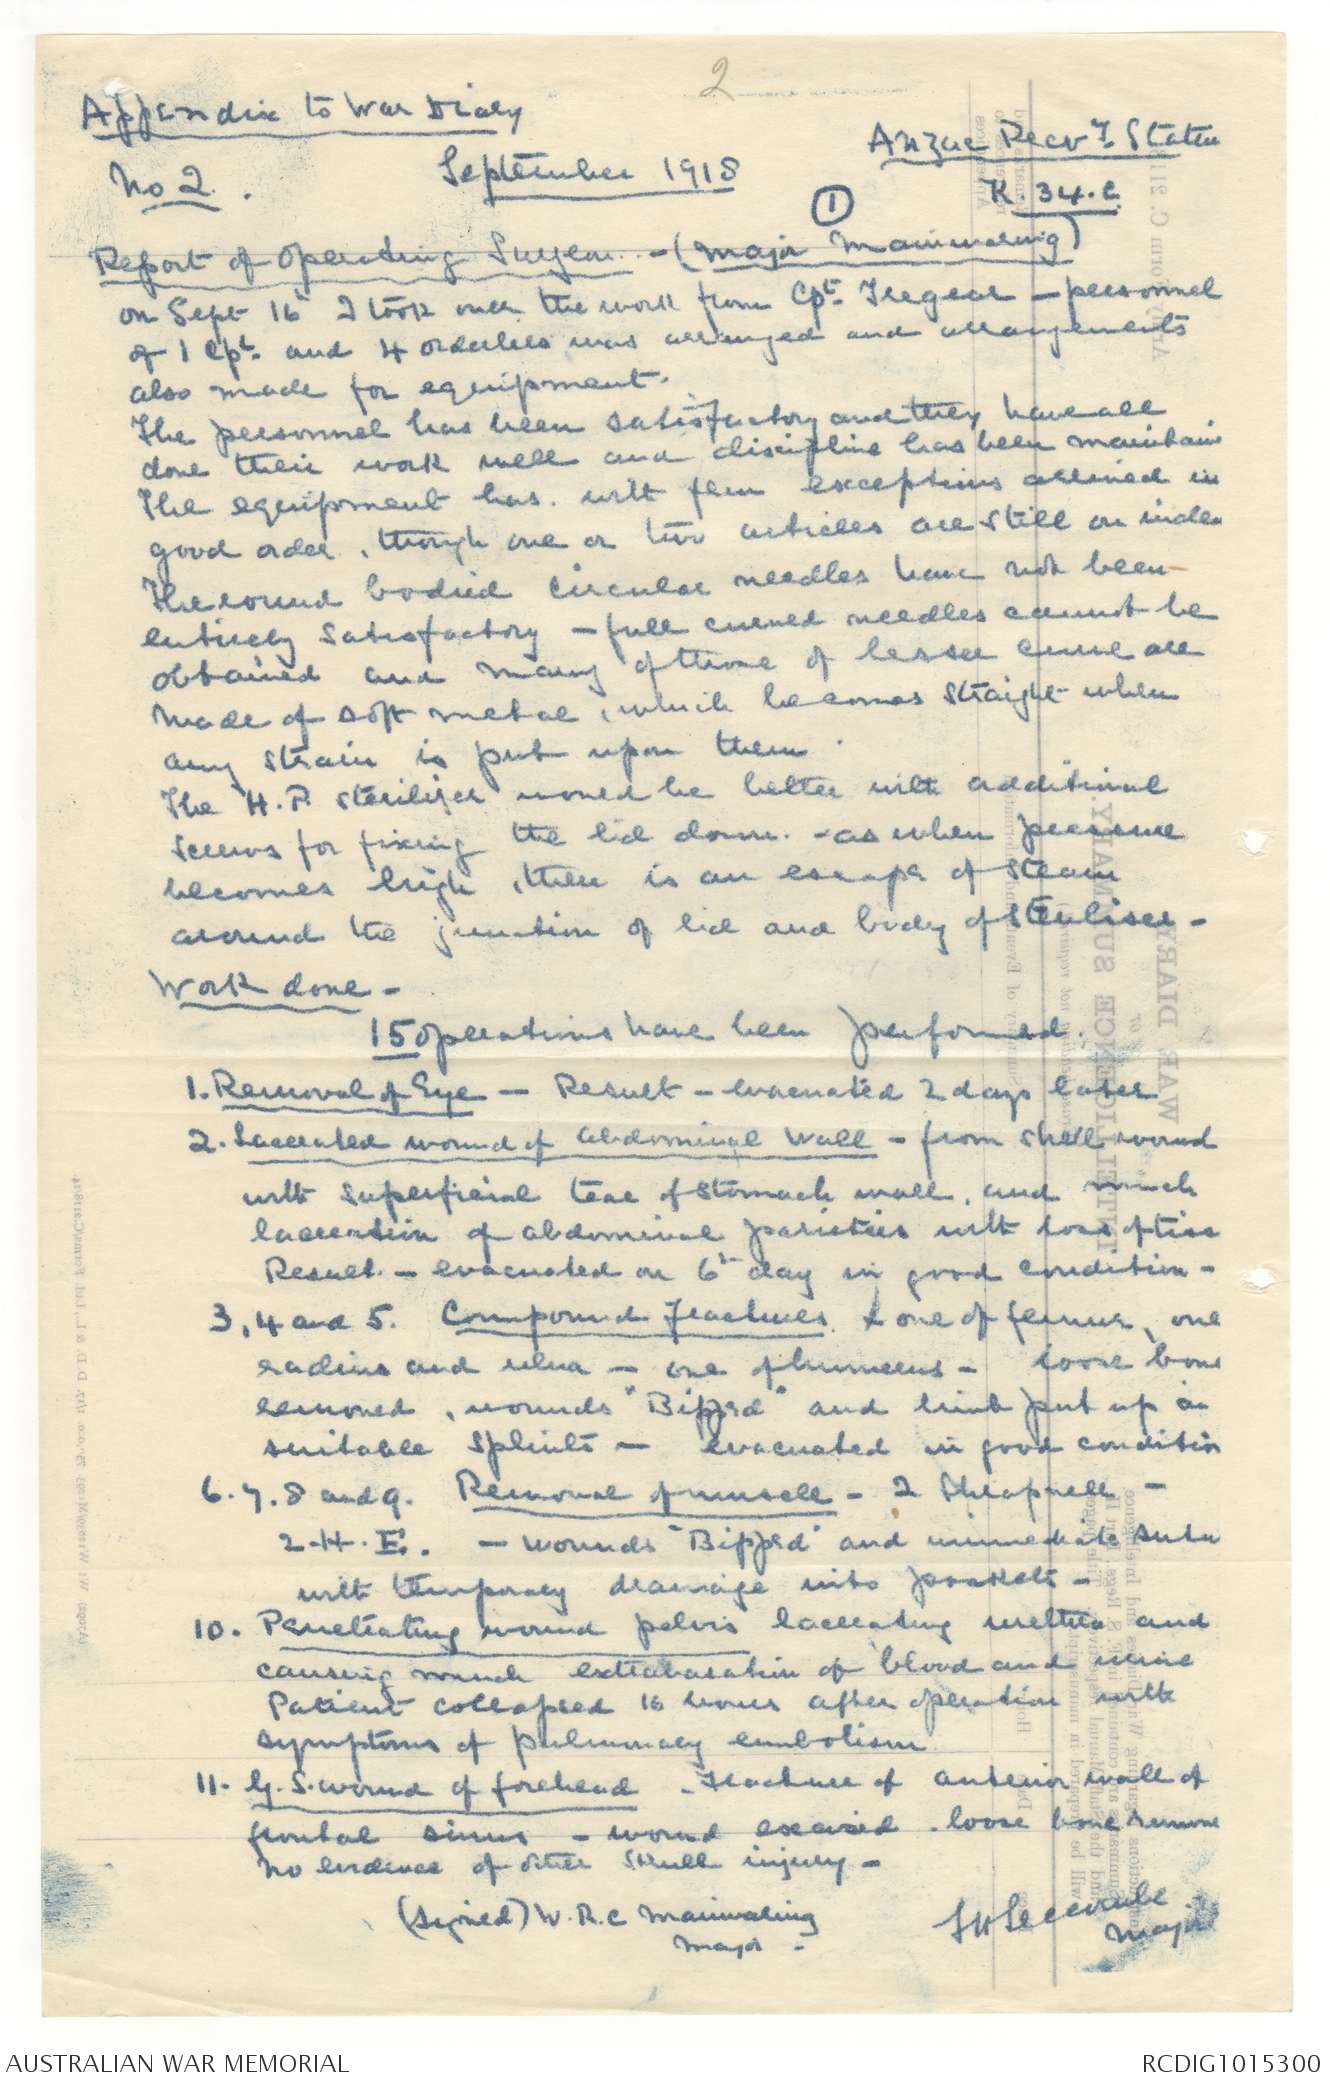 2
Appendix to War Diary
Anzac Recvg. Station
No 2.
September 1918
K. 34. c.
(1)
Report of Operating Surgeon. - (Major Mainwaring)
on Sept 16th I took over the work from Cpt. Tregear - personnel
of 1 Cpl. and 4 orderlies was arranged and arrangements
also made for equipment.
The personnel has been satisfactory and they have all
done their work well and discipline has been maintain
The equipment has. with few exceptions arrived in
good order, though one or two articles are still on inden
The round bodied circular needles have not been
entirely satisfactory - full curved needles cannot be
obtained and many of those of lesser curve are
made of soft metal, which becomes straight when
any strain is put upon them.
The H.P. Sterilizer would be better with additional
screws for fixing the lid down. - as when pressure
becomes high, there is an escape of steam
around the junction of lid and body of steriliser -
Work done -
15 Operations have been performed.
1. Removal of Eye - Result - evacuated 2 days later
2. Lacerated wound of abdominal wall - from shell wound
with superficial tear of stomach wall, and much
laceration of abdominal parieties with loss of tiss
Result - evacuated on 6th day in good condition -
3, 4 and 5. Compound Fractures, & one of femur, one
radius and ulna - one of humerus - loose bone
removed, wounds "Bipped" and limb put up in
suitable splints - evacuated in good condition
6. 7. 8 and 9. Removal of missile - 2 Shrapnell -
2 - H. E. - wounds "Bipped" and immediate sutu
with temporary drainage into pockets -
10. Penetrating wound pelvis lacerating urethra and
causing much extravasation of blood and urine
Patient collapsed 16 hours after operation with
symptoms of pulmonary embolism
11. G. S. wound of forehead - Fracture of anterior wall of
frontal sinus - wound excised. loose bone remove
no evidence of other skull injury -
(signed) W. R. C Mainwaring
Major -
Major
AUSTRALIAN WAR MEMORIAL
RCDIG1015300